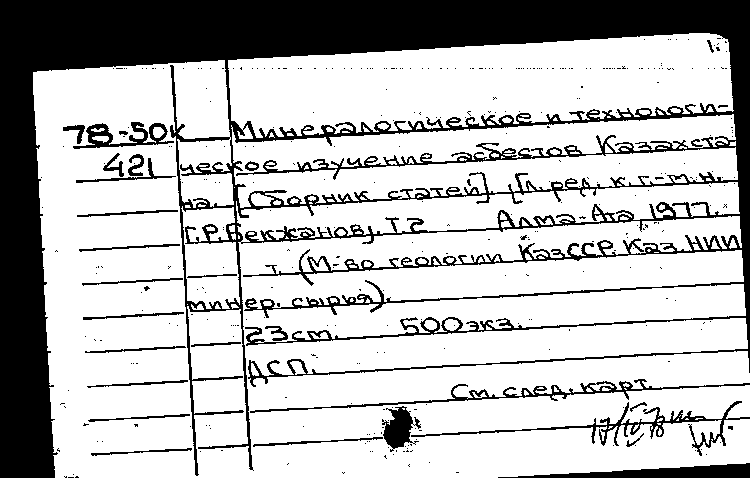 78-50к Минералогическое и технологи-
421 ческое изучение асбестов Казахста-
на. [Сборник статей]. [Гл. ред. к. г.-м. н.
Г.Р. Бекжанов]. Т. 2 Алма-Ата, 1977.
т. (М-во геологии КазССР. Каз. НИИ
минер. сырья).
23 cm. 500 экз.
ДСП.
См. след. карт.